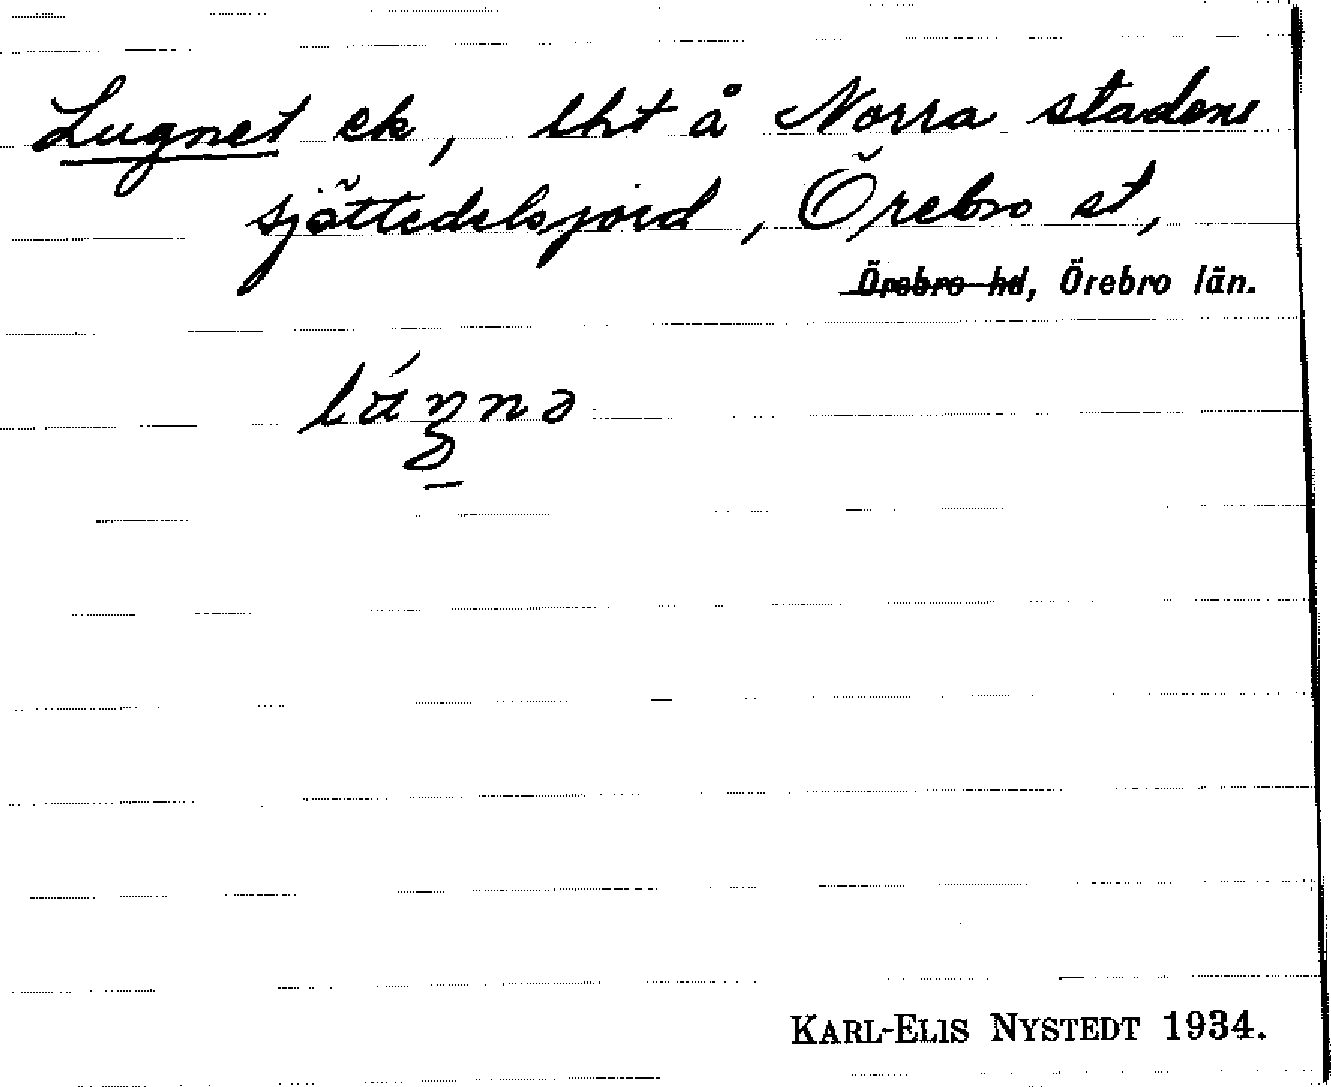 Lugnet ek, lht å Norra stadens
sjättedelsjord, Örebro st,
Örebro hd, Örebro län.
KARL-ELIS NYSTEDT 1934.